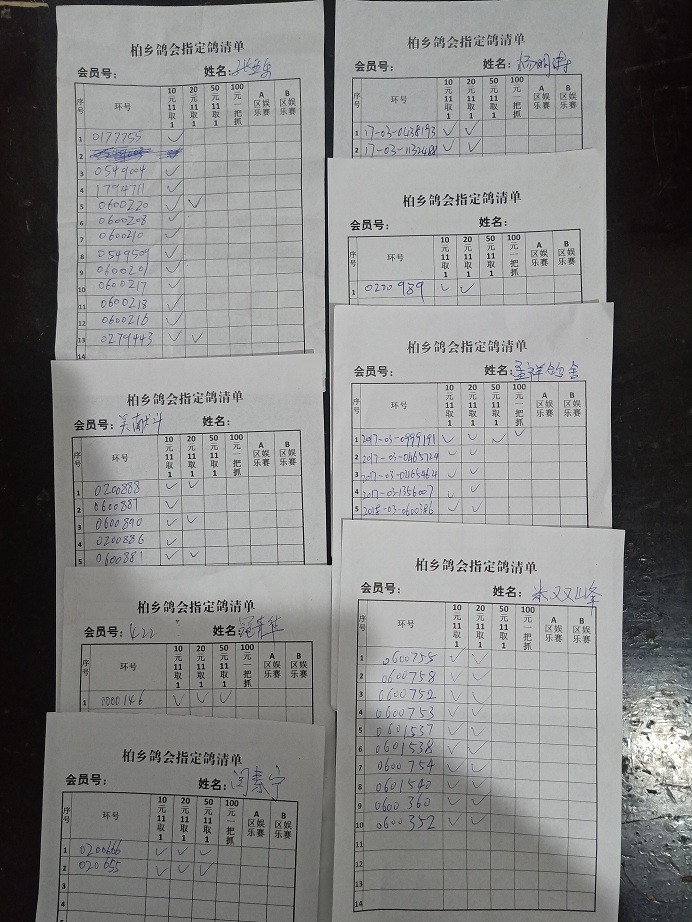 柏乡鸽会指定鸽清单
会员号: 姓名:
序号 环号 10元11取1 20元11取1 50元11取1 100元一把抓 A区娱乐赛 B区娱乐赛
1 0177755 ✓
2
3 0549004 ✓
4 1794711 ✓
5 0600220 ✓ ✓
6 0600208 ✓
7 0600210 ✓
8 0549509 ✓
9 0600201 ✓
10 0600217 ✓
11 0600218 ✓
12 0600216 ✓
13 0279443 ✓ ✓
14
柏乡鸽会指定鸽清单
会员号: 姓名:
序号 环号 10元11取1 20元11取1 50元11取1 100元一把抓 A区娱乐赛 B区娱乐赛
1 0200888 ✓ ✓
2 0600887 ✓
3 0600890 ✓ ✓
4 0200886 ✓
5 0600881 ✓ ✓
柏乡鸽会指定鸽清单
会员号: 姓名:
序号 环号 10元11取1 20元11取1 50元11取1 100元一把抓 A区娱乐赛 B区娱乐赛
1 0000146 ✓ ✓ ✓
柏乡鸽会指定鸽清单
会员号: 姓名:闫秦宁
序号 环号 10元11取1 20元11取1 50元11取1 100元一把抓 A区娱乐赛 B区娱乐赛
1 0200666 ✓ ✓ ✓
2 020655 ✓ ✓ ✓
3
柏乡鸽会指定鸽清单
会员号: 姓名:
序号 环号 10元11取1 20元11取1 50元11取1 100元一把抓 A区娱乐赛 B区娱乐赛
1 17-03-0438193 ✓ ✓
2 17-03-1132488 ✓ ✓
柏乡鸽会指定鸽清单
会员号: 姓名:
序号 环号 10元11取1 20元11取1 50元11取1 100元一把抓 A区娱乐赛 B区娱乐赛
1 0220989 ✓ ✓
柏乡鸽会指定鸽清单
会员号: 姓名:祥鸽舍
序号 环号 10元11取1 20元11取1 50元11取1 100元一把抓 A区娱乐赛 B区娱乐赛
1 2017-03-0999191 ✓ ✓ ✓ ✓
2 2017-03-0465724 ✓ ✓
3 2017-03-0465464 ✓ ✓
4 2017-03-1356007 ✓
5 2018-03-0600386 ✓ ✓
柏乡鸽会指定鸽清单
会员号: 姓名:米双峰
序号 环号 10元11取1 20元11取1 50元11取1 100元一把抓 A区娱乐赛 B区娱乐赛
1 0600755 ✓ ✓
2 0600758 ✓ ✓
3 0600752 ✓ ✓
4 0600753 ✓ ✓
5 0601537 ✓ ✓
6 0601538 ✓ ✓
7 0600754 ✓ ✓
8 0601540 ✓ ✓
9 0600360 ✓ ✓
10 0600352 ✓ ✓
11
12
13
14